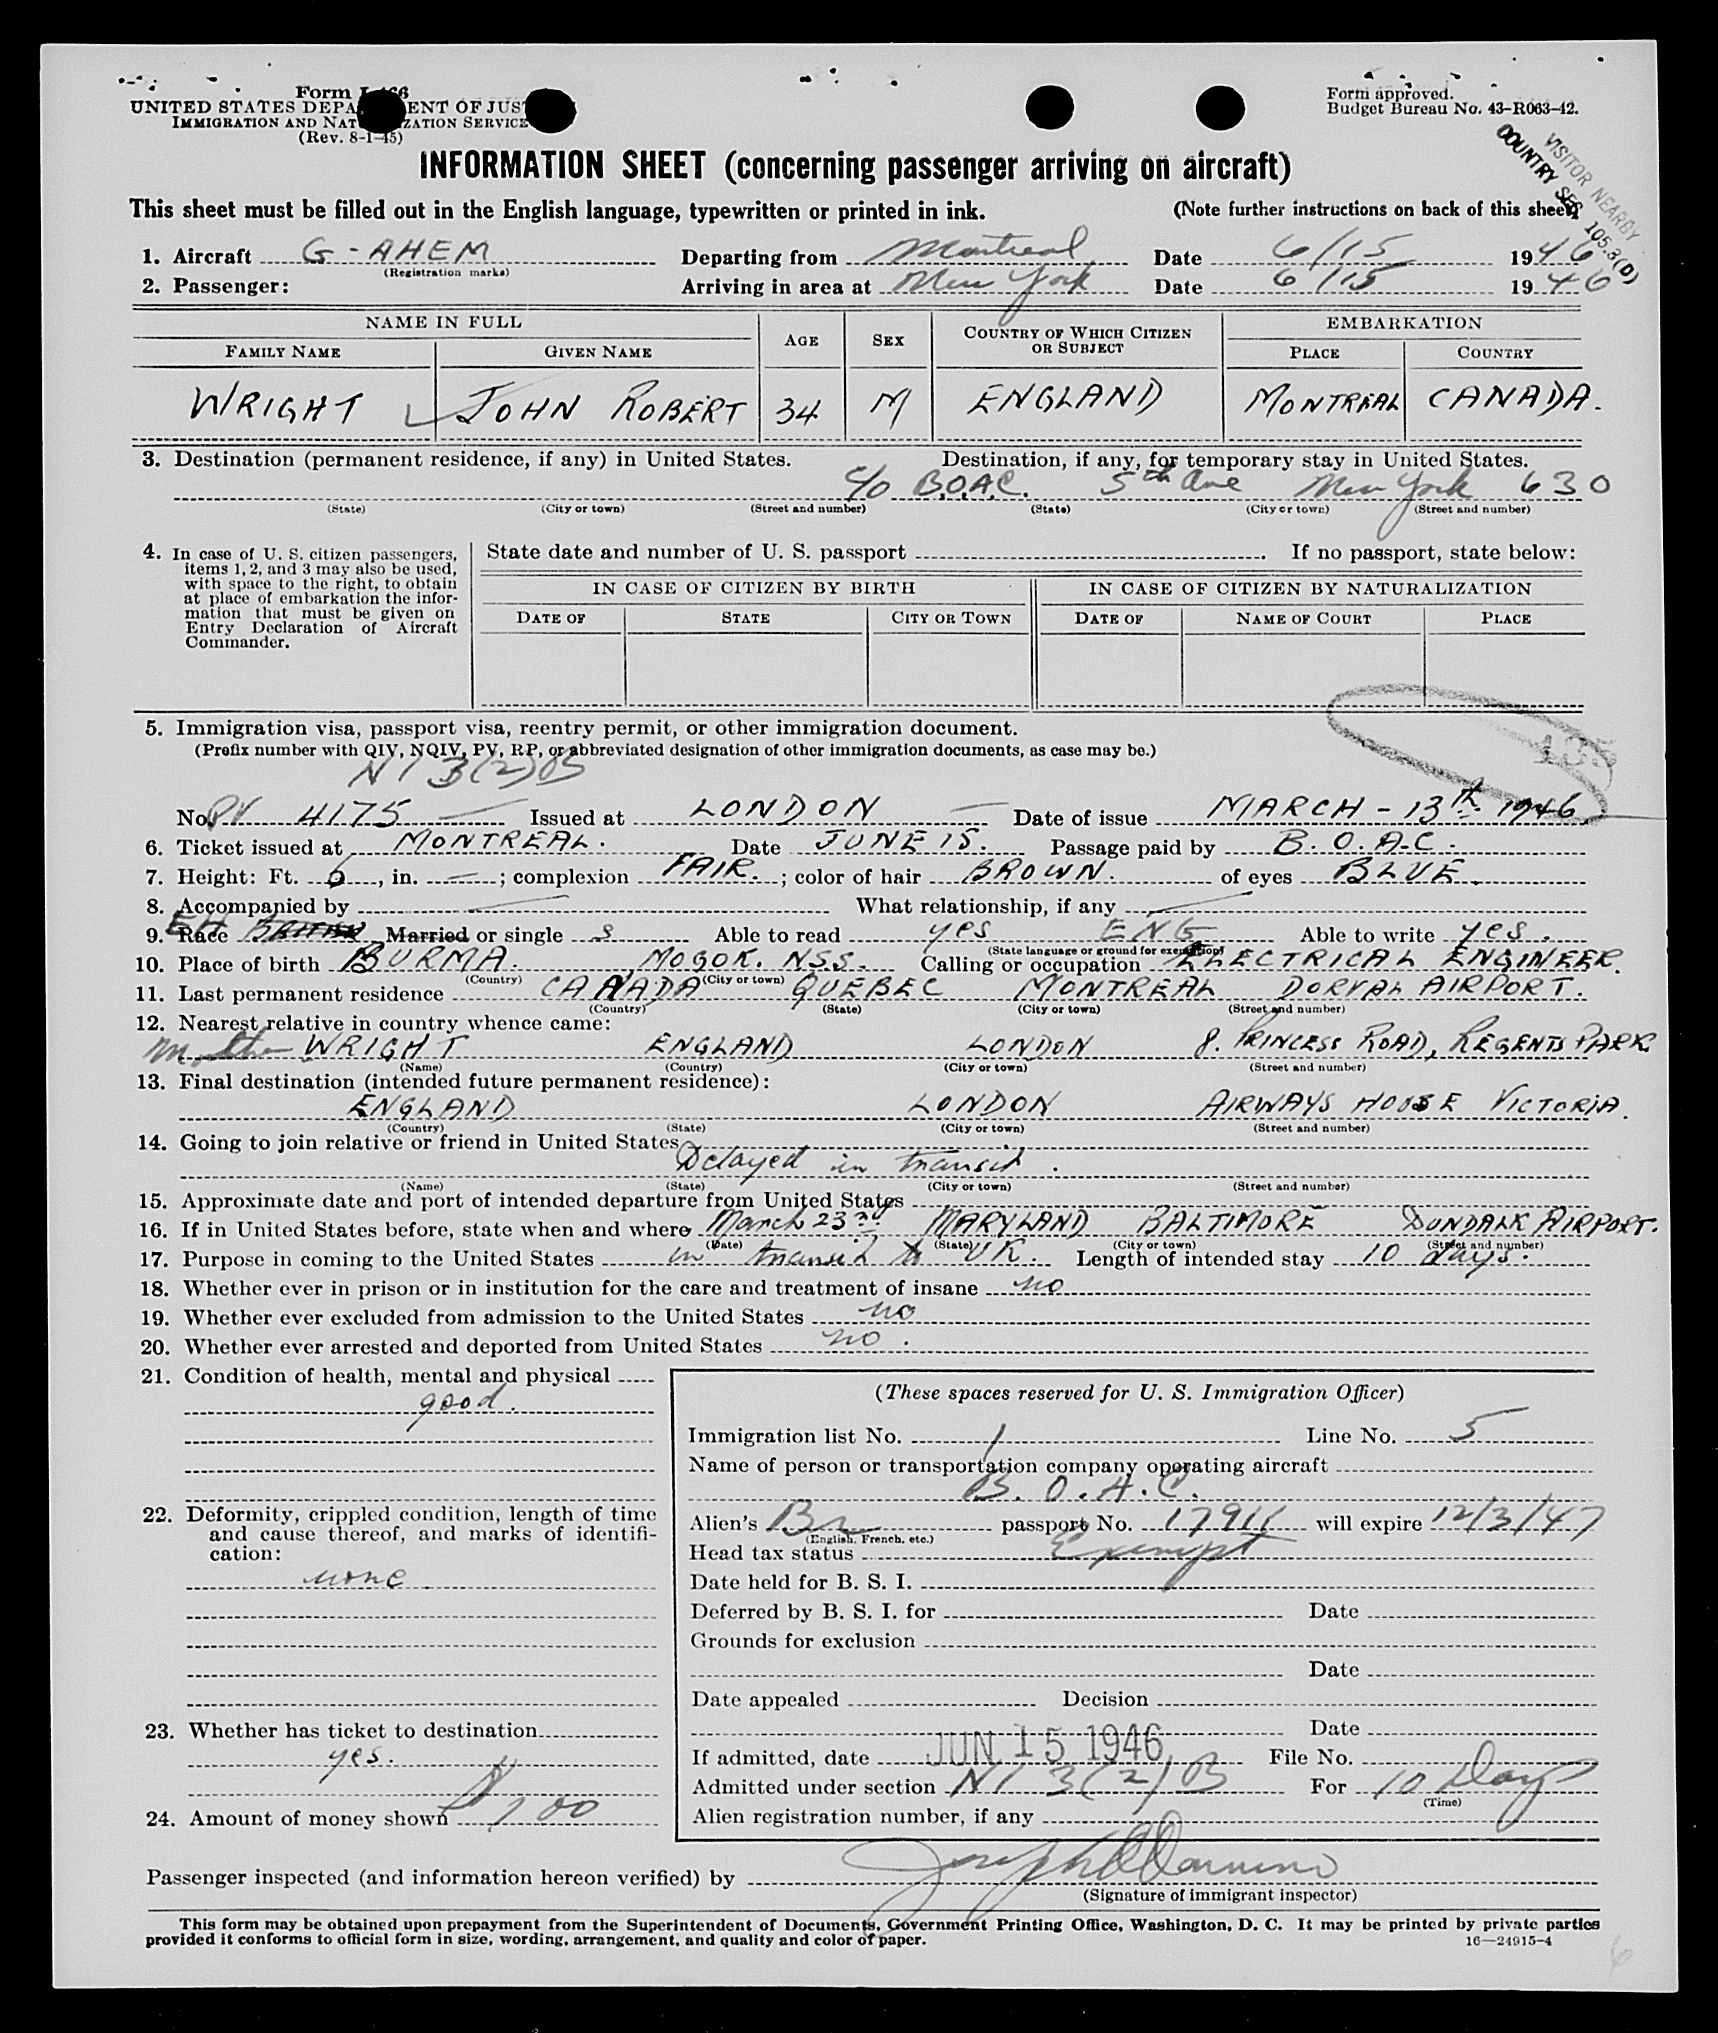 Form I-466
UNITED STATES DEPARTMENT OF JUSTICE
IMMIGRATION AND NATURALIZATION SERVICE
(Rev. 8-1-45)
Form approved.
Budget Bureau No. 43-R063-42.
VISITOR NEARBY
COUNTRY SEC 105.3(D)
INFORMATION SHEET (concerning passenger arriving on aircraft)
This sheet must be filled out in the English language, typewritten or printed in ink. (Note further instructions on back of this sheet)
1. Aircraft G-AHEM Departing from Montreal Date 6/15 1946
(Registration marks)
2. Passenger: Arriving in area at New York Date 6/15 1946
NAME IN FULL AGE SEX COUNTRY OF WHICH CITIZEN OR SUBJECT EMBARKATION
FAMILY NAME GIVEN NAME PLACE COUNTRY
WRIGHT JOHN ROBERT 34 M ENGLAND MONTREAL CANADA.
3. Destination (permanent residence, if any) in United States. Destination, if any, for temporary stay in United States.
c/o B.O.A.C. 5th Ave New York 630
(State) (City or town) (Street and number) (State) (City or town) (Street and number)
4. In case of U. S. citizen passengers, items 1, 2, and 3 may also be used, with space to the right, to obtain at place of embarkation the information that must be given on Entry Declaration of Aircraft Commander.
State date and number of U. S. passport . If no passport, state below:
IN CASE OF CITIZEN BY BIRTH IN CASE OF CITIZEN BY NATURALIZATION
DATE OF STATE CITY OR TOWN DATE OF NAME OF COURT PLACE
5. Immigration visa, passport visa, reentry permit, or other immigration document.
(Prefix number with QIV, NQIV, PV, RP, or abbreviated designation of other immigration documents, as case may be.)
NI 3(2)B
No. PV 4175 Issued at LONDON Date of issue MARCH - 13th. 1946.
6. Ticket issued at MONTREAL. Date JUNE 15. Passage paid by B.O.A.C.
7. Height: Ft. 6, in. —; complexion FAIR.; color of hair BROWN. of eyes BLUE.
8. Accompanied by — What relationship, if any —
9. Race BRITISH Married or single S Able to read yes ENG Able to write yes.
(State language or ground for exemption)
10. Place of birth BURMA. MOGOK. NSS. Calling or occupation ELECTRICAL ENGINEER.
(Country) (City or town)
11. Last permanent residence CANADA QUEBEC MONTREAL DORVAL AIRPORT.
(Country) (State) (City or town) (Street and number)
12. Nearest relative in country whence came:
Mother WRIGHT ENGLAND LONDON 8. PRINCESS ROAD, REGENTS PARK
(Name) (Country) (City or town) (Street and number)
13. Final destination (intended future permanent residence):
ENGLAND LONDON AIRWAYS HOUSE VICTORIA.
(Country) (State) (City or town) (Street and number)
14. Going to join relative or friend in United States
Delayed in transit.
(Name) (State) (City or town) (Street and number)
15. Approximate date and port of intended departure from United States
16. If in United States before, state when and where March 23rd MARYLAND BALTIMORE DUNDALK AIRPORT.
(Date) (State) (City or town) (Street and number)
17. Purpose in coming to the United States in transit to UK. Length of intended stay 10 days.
18. Whether ever in prison or in institution for the care and treatment of insane no
19. Whether ever excluded from admission to the United States no
20. Whether ever arrested and deported from United States no.
21. Condition of health, mental and physical
good.
22. Deformity, crippled condition, length of time and cause thereof, and marks of identification:
none
23. Whether has ticket to destination
yes.
24. Amount of money shown $100
(These spaces reserved for U. S. Immigration Officer)
Immigration list No. 1 Line No. 5
Name of person or transportation company operating aircraft
B.O.A.C.
Alien's Br passport No. 17911 will expire 12/3/47
(English, French, etc.)
Head tax status Exempt
Date held for B. S. I.
Deferred by B. S. I. for Date
Grounds for exclusion
Date
Date appealed Decision
Date
If admitted, date JUN 15 1946 File No.
Admitted under section NI 3(2)B For 10 Days
(Time)
Alien registration number, if any
Passenger inspected (and information hereon verified) by
(Signature of immigrant inspector)
This form may be obtained upon prepayment from the Superintendent of Documents, Government Printing Office, Washington, D. C. It may be printed by private parties
provided it conforms to official form in size, wording, arrangement, and quality and color of paper.
16—24915-4
6